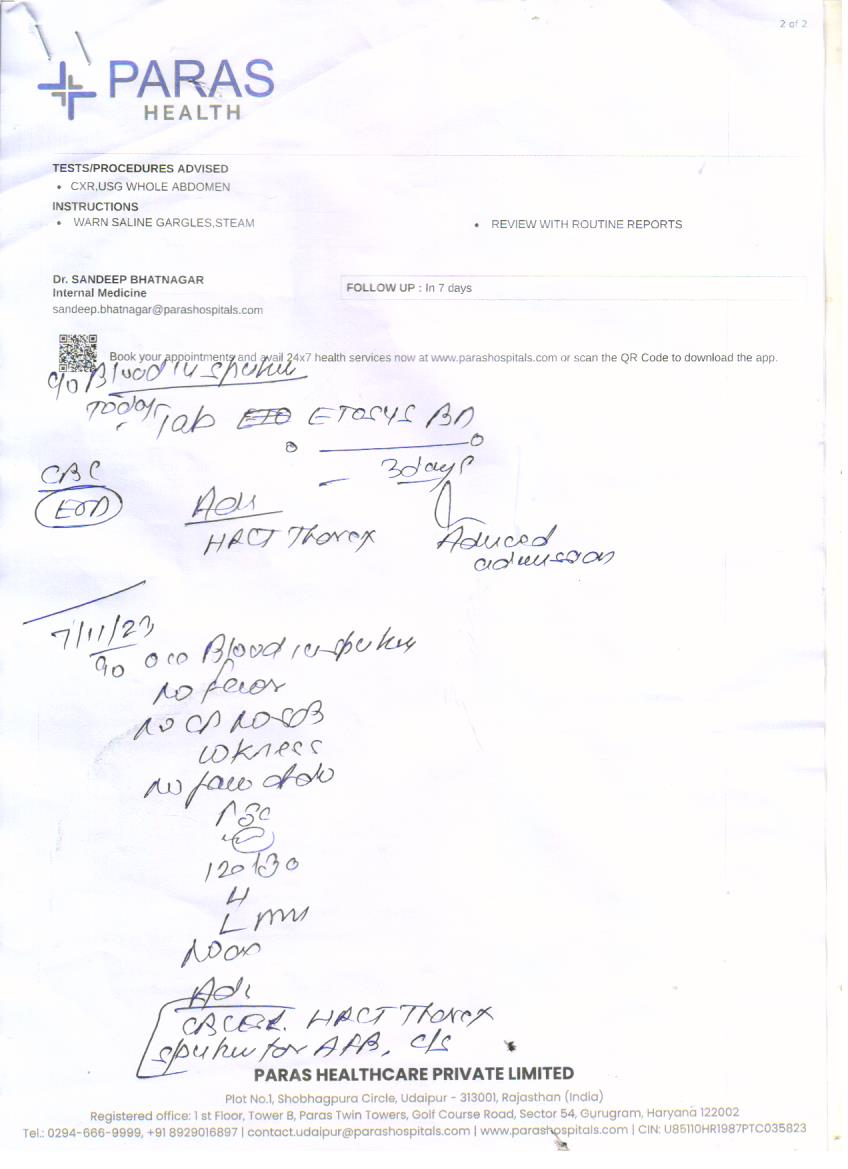 2 of 2
PARAS
HEALTH
TESTS/PROCEDURES ADVISED
• CXR,USG WHOLE ABDOMEN
INSTRUCTIONS
• WARN SALINE GARGLES,STEAM
• REVIEW WITH ROUTINE REPORTS
Dr. SANDEEP BHATNAGAR
Internal Medicine
sandeep.bhatnagar@parashospitals.com
FOLLOW UP : In 7 days
Book your appointments and avail 24x7 health services now at www.parashospitals.com or scan the QR Code to download the app.
c/o Blood in sputum
Today
Tab ETOSYS BD
3 days
CBC
Adv
HRCT Thorax
Adviced
admission
7/11/23
c/o occ Blood in sputum
No fever
No CP No SOB
wkness
No
120/80
L
Adv
CBC HRCT Thorax
sputum for AFB, c/s
PARAS HEALTHCARE PRIVATE LIMITED
Plot No.1, Shobhagpura Circle, Udaipur - 313001, Rajasthan (India)
Registered office: 1 st Floor, Tower B, Paras Twin Towers, Golf Course Road, Sector 54, Gurugram, Haryana 122002
Tel.: 0294-666-9999, +91 8929016897 | contact.udaipur@parashospitals.com | www.parashospitals.com | CIN: U85110HR1987PTC035823